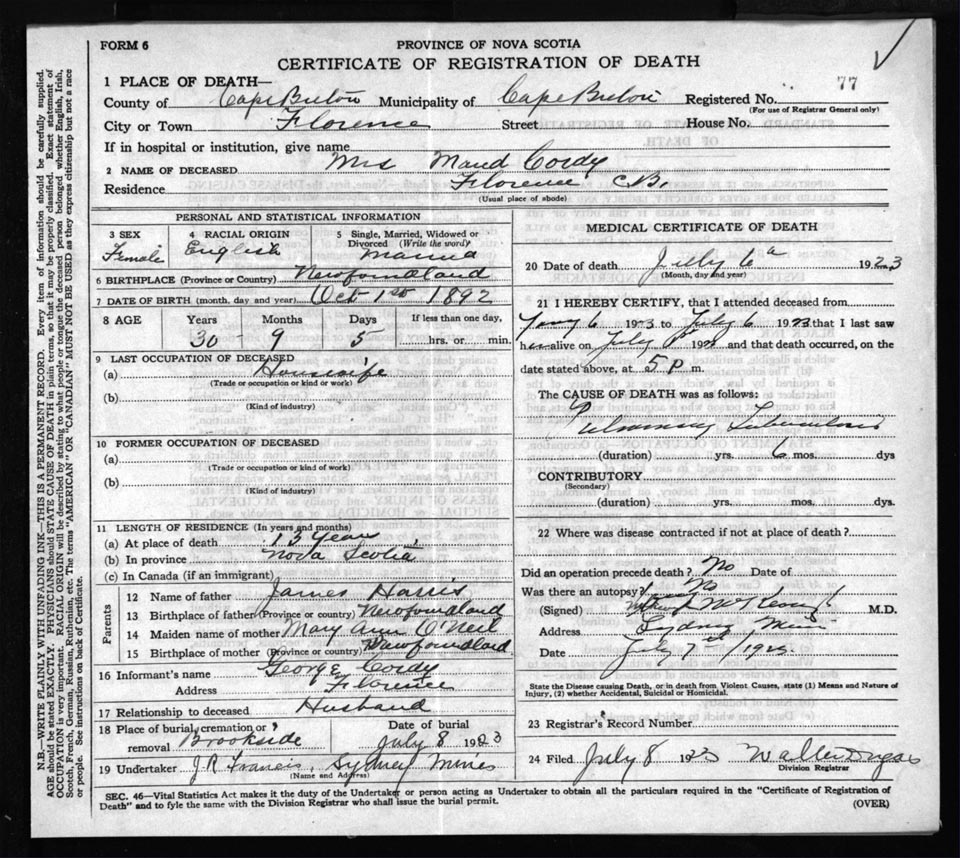 FORM 6
PROVINCE OF NOVA SCOTIA
CERTIFICATE OF REGISTRATION OF DEATH
77
N.B.—WRITE PLAINLY WITH UNFADING INK—THIS IS A PERMANENT RECORD. Every item of information should be carefully supplied.
AGE should be stated EXACTLY. PHYSICIANS should STATE CAUSE OF DEATH in plain terms, so that it may be properly classified. Exact statement of
OCCUPATION is very important. RACIAL ORIGIN will be described by stating to what people or tongue the deceased person belonged whether English, Irish,
Scotch, French, German, Russian, Ruthenian, etc. The terms "AMERICAN" OR "CANADIAN" MUST NOT BE USED as they express citizenship but not a race
or people. See instructions on back of Certificate.
1 PLACE OF DEATH—
County of Cape Breton Municipality of Cape Breton Registered No.
(For use of Registrar General only)
City or Town Florence Street House No.
If in hospital or institution, give name
2 NAME OF DECEASED Mrs Maud Cordy
Residence Florence C.B.
(Usual place of abode)
PERSONAL AND STATISTICAL INFORMATION
3 SEX Female
4 RACIAL ORIGIN English
5 Single, Married, Widowed or Divorced (Write the word) Married
6 BIRTHPLACE (Province or Country) Newfoundland
7 DATE OF BIRTH (month, day and year) Oct 1st 1892
8 AGE Years 30 Months 9 Days 5 If less than one day, hrs. or min.
9 LAST OCCUPATION OF DECEASED
(a) Housewife
(Trade or occupation or kind or work)
(b)
(Kind of industry)
10 FORMER OCCUPATION OF DECEASED
(a)
(Trade or occupation or kind of work)
(b)
(Kind of industry)
11 LENGTH OF RESIDENCE (In years and months)
(a) At place of death 13 Years
(b) In province Nova Scotia
(c) In Canada (if an immigrant)
Parents
12 Name of father James Harris
13 Birthplace of father (Province or country) Newfoundland
14 Maiden name of mother Mary Ann O'Neil
15 Birthplace of mother (Province or country) Newfoundland
16 Informant's name George Cordy
Address Florence
17 Relationship to deceased Husband
18 Place of burial, cremation or removal Brookside
Date of burial July 8 1923
19 Undertaker J.R. Francis, Sydney Mines
(Name and Address)
MEDICAL CERTIFICATE OF DEATH
20 Date of death July 6 1923
(Month, day and year)
21 I HEREBY CERTIFY, that I attended deceased from
6 1923 to July 6 1923 that I last saw
alive on July 192 and that death occurred, on the
date stated above, at 5 p m.
The CAUSE OF DEATH was as follows:
Pulmonary Tuberculosis
(duration) yrs. 6 mos. dys
CONTRIBUTORY
(Secondary)
(duration) yrs. mos. dys.
22 Where was disease contracted if not at place of death?
Did an operation precede death? No Date of
Was there an autopsy? No
(Signed) McKeough M.D.
Address Sydney Mines
Date July 7th
State the Disease causing Death, or in death from Violent Causes, state (1) Means and Nature of
Injury, (2) whether Accidental, Suicidal or Homicidal.
23 Registrar's Record Number
24 Filed July 8 1923
Division Registrar
SEC. 46—Vital Statistics Act makes it the duty of the Undertaker or person acting as Undertaker to obtain all the particulars required in the "Certificate of Registration of
Death" and to fyle the same with the Division Registrar who shall issue the burial permit.
(OVER)